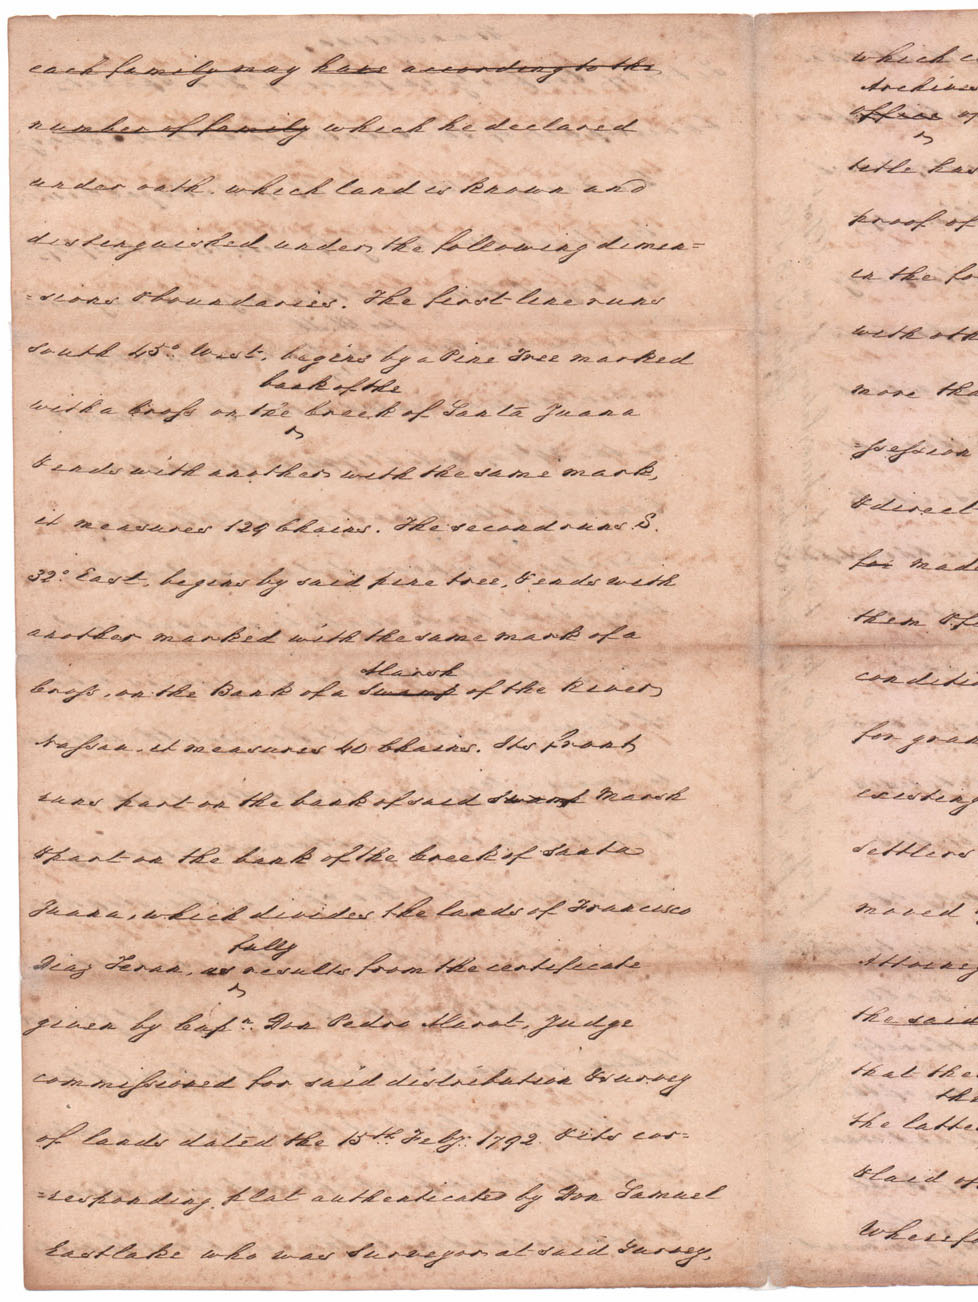 each family may have according to the
number of family which he declared
under oath. which land is known and
distinguished under the following dimen=
=sions & boundaries. The first line runs
south 45° West, begins by a Pine Tree marked
back of the
with a Cross on the Creek of Santa Juana
& ends with another with the same mark,
it measures 129 Chains. The second runs S.
32° East, begins by said pine tree, & ends with
another marked with the same mark of a
Marsh
Cross, on the Bank of a Swamp of the River
Nassau. it measures 40 Chains. Its front
runs part on the bank of said Swamp Marsh
& part on the bank of the Creek of Santa
Juana, which divides the lands of Francisco
fully
Diaz Feran, as results from the certificate
given by Capn. Don Pedro Marot, Judge
commissioned for said distribution & survey
of lands dated the 15th. Feby. 1792 & its cor=
=responding plat authenticated by Don Samuel
Eastlake who was Surveyor at said Survey,
which
Archives
Office of
title has
proof of
in the
with
more
=ssession
& direct
for made
them &
conditi
for gran
existing
settlers
moved
Attorney
the said
that the
the
the latte
& laid of
Wheref